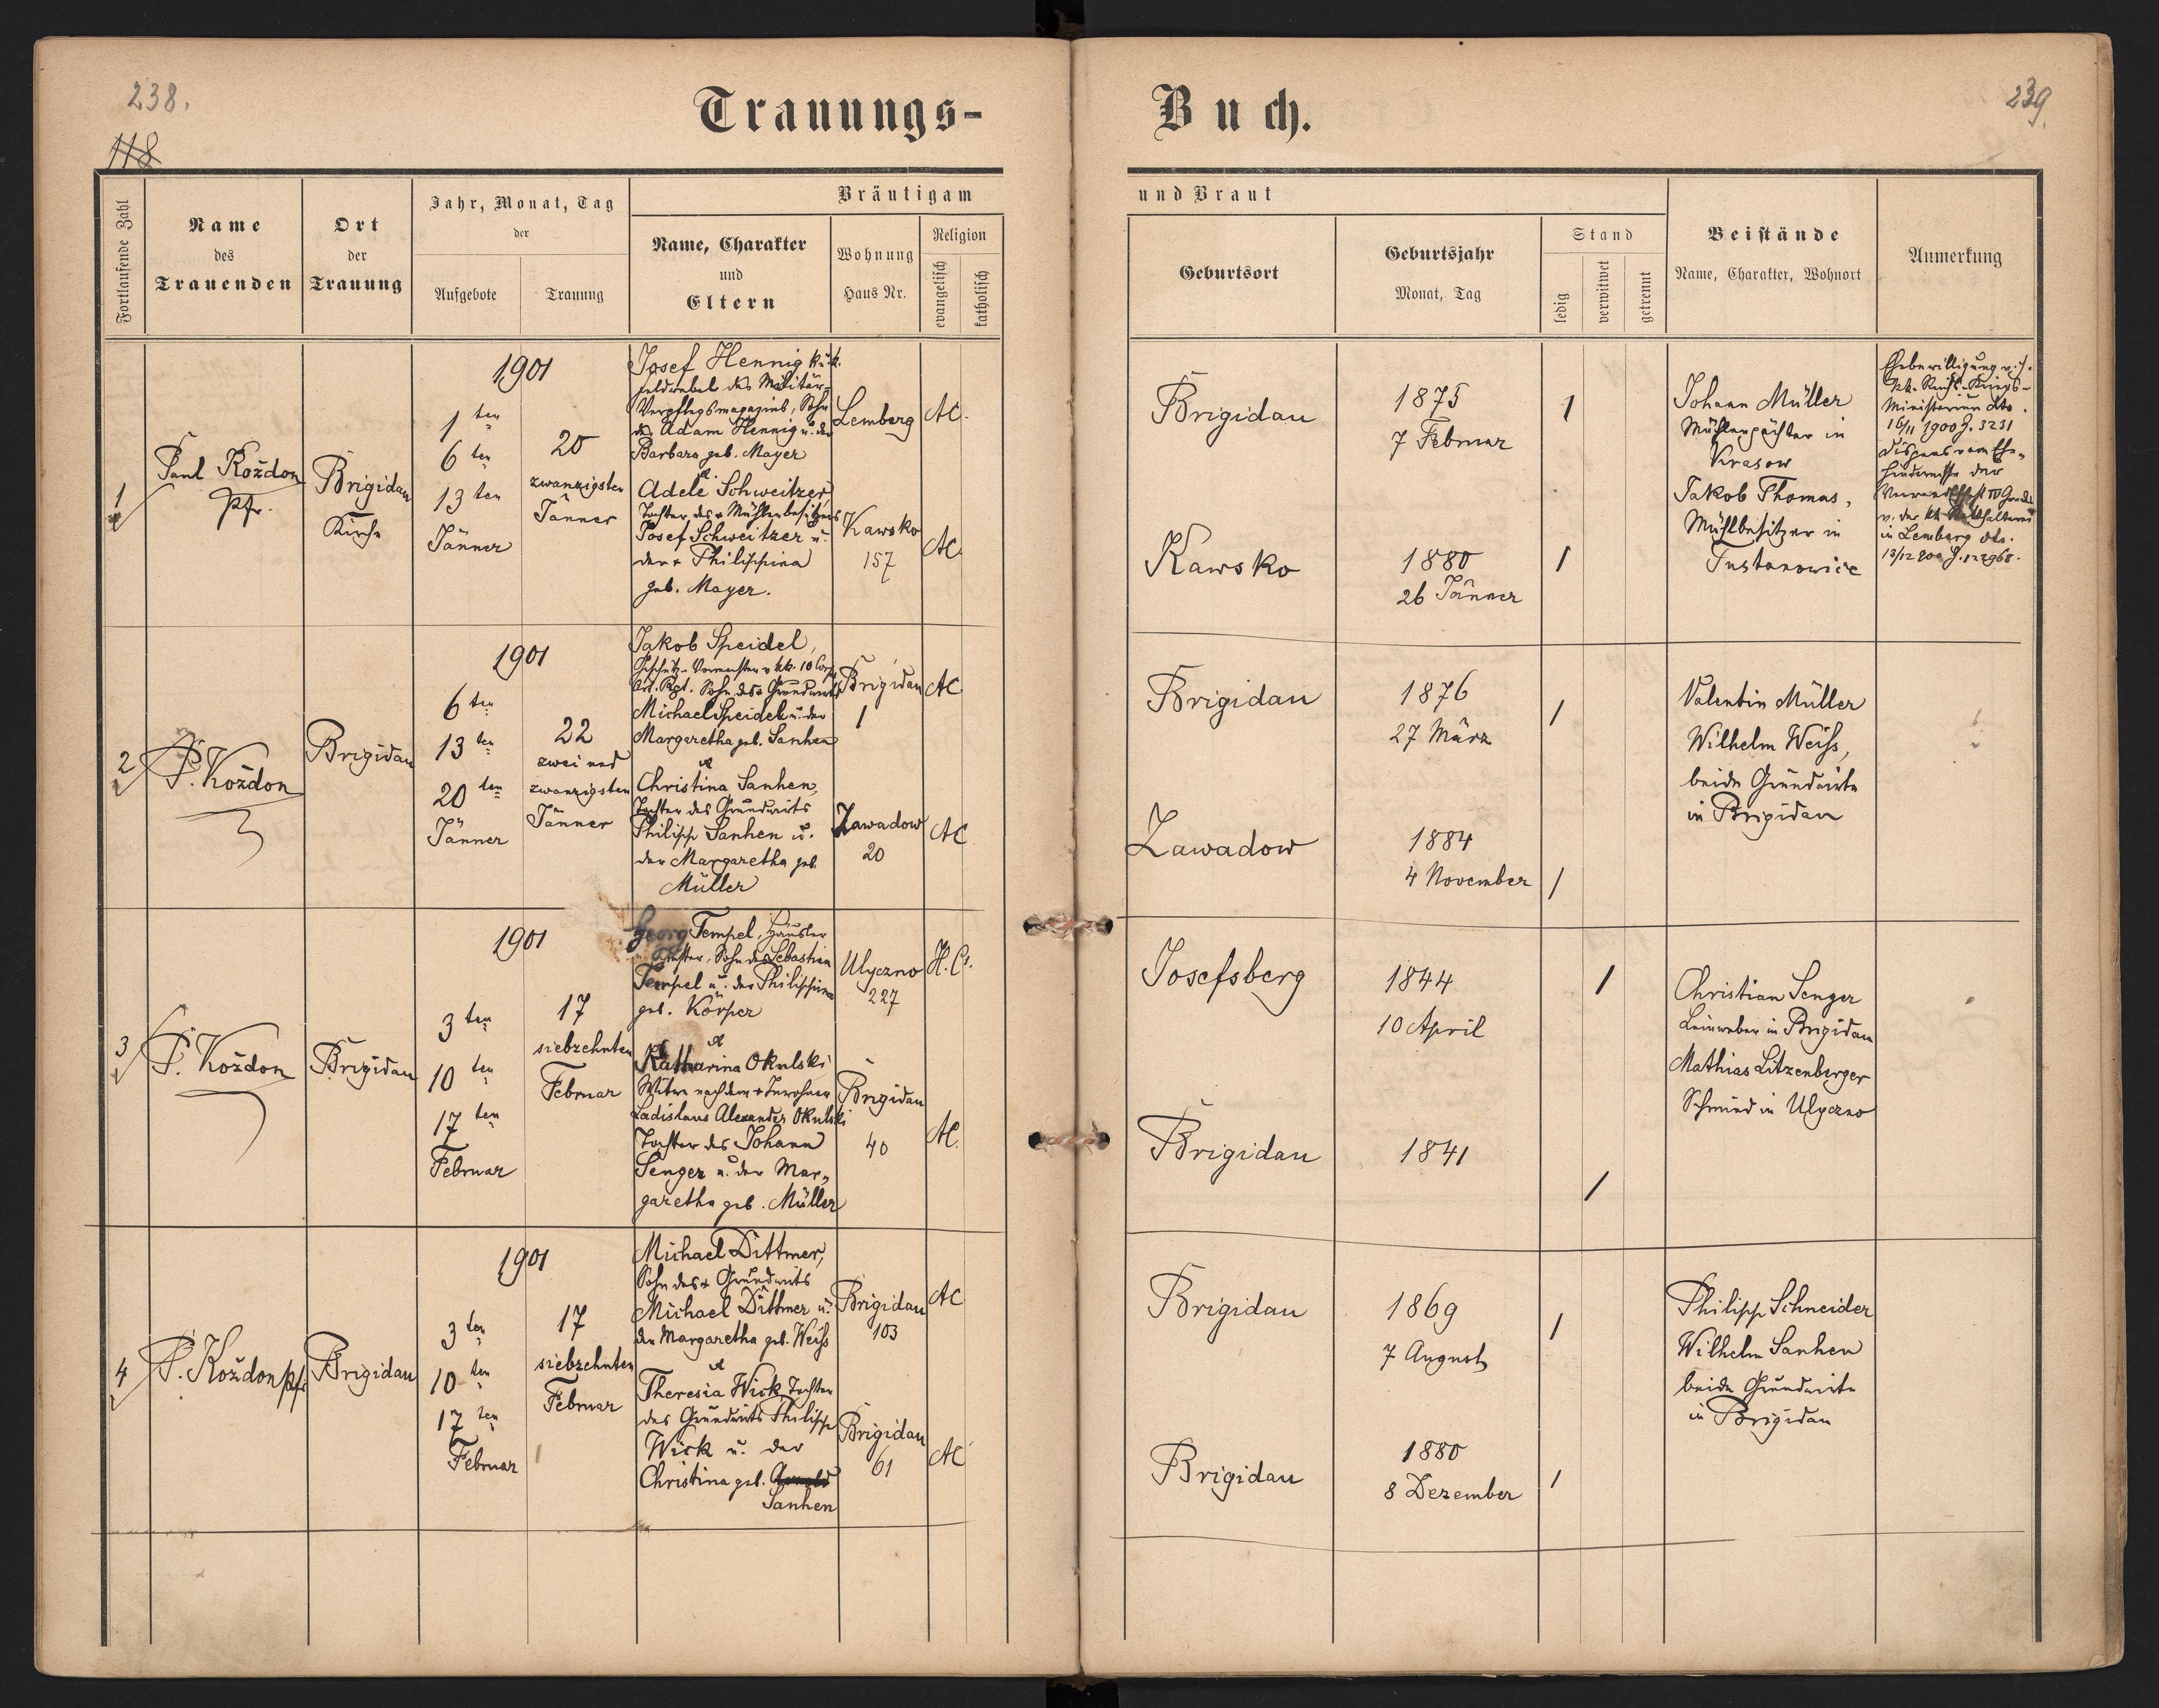 238.
118
Trauungs-
Buch.
239.
Fortlaufende Zahl
Name
des
Trauenden
Ort
der
Trauung
Jahr, Monat, Tag
der
Aufgebote
Trauung
Bräutigam
Name, Charakter
und
Eltern
Wohnung
Haus Nr.
Religion
evangelisch
katholisch
und Braut
Geburtsort
Geburtsjahr
Monat, Tag
Stand
ledig
verwitwet
getrennt
Beistände
Name, Charakter, Wohnort
Anmerkung
1
Paul Koždon
Pfr.
Brigidau
Kirche
1901
1 ten
6 ten
13 ten
Jänner
20
zwanzigsten
Jänner
Josef Hennig k. u. k.
Feldwebel des Militär-
Verpflegsmagazins, Sohn
des Adam Hennig u. der
Barbara geb. Mayer
Adele Schweitzer
Tochter des + Mühlenbesitzers
Josef Schweitzer u.
der + Philippina
geb. Mayer.
Lemberg
AC.
Kawsko
157
AC.
Brigidau
1875
7 Februar
1
Kawsko
1880
26 Jänner
1
Johann Müller
Mühlenpächter in
Krasow
Jakob Thomas,
Mühlbesitzer in
Tustanowice
Ehebewilligung v.
kk. Reichs-Kriegs-
Ministerium dto.
16/11 1900 Z. 3231
Dispens vom Ehe-
hindernisse der
Verwandtschaft IV Grades
v. der kk Statthalterei
in Lemberg dto.
13/12 900 Z. 122968.
2
P. Koždon
Brigidau
1901
6 ten
13 ten
20 ten
Jänner
22
zwei und
zwanzigsten
Jänner
Jakob Speidel,
Geschütz-Vormeister v. kk. 10 Corps
Art. Rgt. Sohn des + Grundwirts
Michael Speidel u. der
Margaretha geb. Sanhen
Christina Sanhen,
Tochter des Grundwirts
Philipp Sanhen u.
der Margaretha geb.
Müller
Brigidau
1
AC
Zawadow
20
AC
Brigidau
1876
27 März
1
Zawadow
1884
4 November
1
Valentin Müller
Wilhelm Weiss,
beide Grundwirte
in Brigidau
3
P. Koždon
Brigidau
1901
3 ten
10 ten
17 ten
Februar
17
siebzehnten
Februar
Georg Tempel, Häusler
Sohn des Sebastian
Tempel u. der Philippina
geb. Körper
Katharina Okulski
Witwe nach dem + Inwohner
Ladislaus Alexander Okulski
Tochter des Johann
Senger u. der Mar-
garetha geb. Müller
Ulyczno
227
H.C.
Brigidau
40
AC.
Josefsberg
1844
10 April
1
Brigidau
1841
1
Christian Senger
Leinweber in Brigidau
Mathias Litzenberger
Schmied in Ulyczno
4
P. Koždon Pfr.
Brigidau
1901
3 ten
10 ten
17 ten
Februar
17
siebzehnten
Februar
Michael Dittmer,
Sohn des + Grundwirts
Michael Dittmer u.
der Margaretha geb. Weiss
Theresia Wick, Tochter
des Grundwirts Philipp
Wick u. der
Christina geb.
Sanhen
Brigidau
103
AC
Brigidau
61
AC
Brigidau
1869
7 August
1
Brigidau
1880
8 Dezember
1
Philipp Schneider
Wilhelm Sanhen
beide Grundwirte
in Brigidau